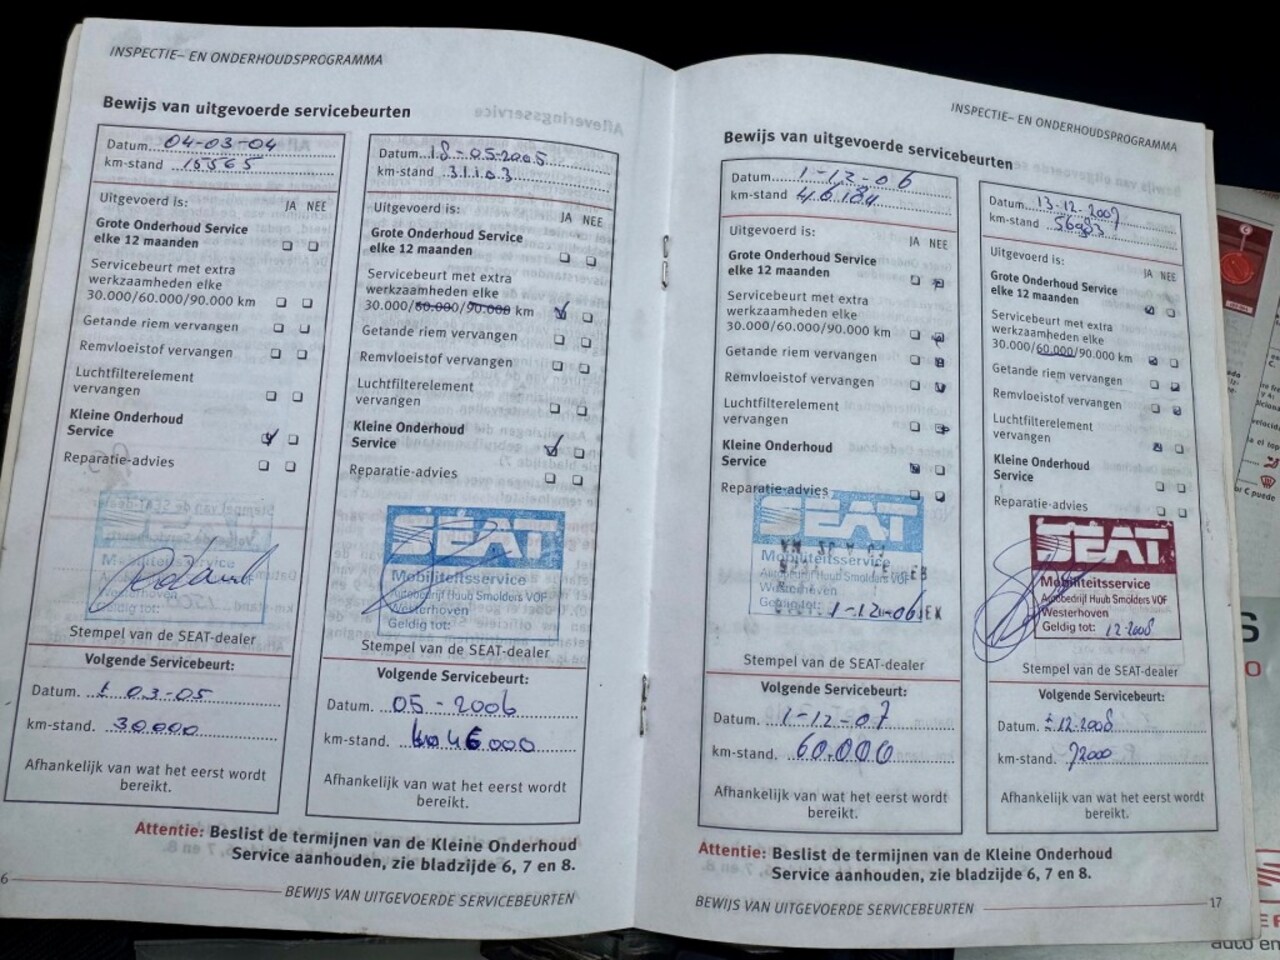 INSPECTIE- EN ONDERHOUDSPROGRAMMA
Bewijs van uitgevoerde servicebeurten
Datum... 04-03-04
km-stand 15565
Uitgevoerd is: JA NEE
Grote Onderhoud Service
elke 12 maanden
Servicebeurt met extra
werkzaamheden elke
30.000/60.000/90.000 km
Getande riem vervangen
Remvloeistof vervangen
Luchtfilterelement
vervangen
Kleine Onderhoud
Service
Reparatie-advies
Mobiliteitsservice
Westerhoven
Geldig tot:
Stempel van de SEAT-dealer
Volgende Servicebeurt:
Datum. ± 03-05
km-stand. 30.000
Afhankelijk van wat het eerst wordt
bereikt.
Datum... 18-05-2005
km-stand 31.103
Uitgevoerd is: JA NEE
Grote Onderhoud Service
elke 12 maanden
Servicebeurt met extra
werkzaamheden elke
30.000/60.000/90.000 km
Getande riem vervangen
Remvloeistof vervangen
Luchtfilterelement
vervangen
Kleine Onderhoud
Service
Reparatie-advies
SEAT
Mobiliteitsservice
Autobedrijf Huub Smolders VOF
Westerhoven
Geldig tot:
Stempel van de SEAT-dealer
Volgende Servicebeurt:
Datum. 05-2006
km-stand. 46.000
Afhankelijk van wat het eerst wordt
bereikt.
Attentie: Beslist de termijnen van de Kleine Onderhoud
Service aanhouden, zie bladzijde 6, 7 en 8.
6
BEWIJS VAN UITGEVOERDE SERVICEBEURTEN
INSPECTIE- EN ONDERHOUDSPROGRAMMA
Bewijs van uitgevoerde servicebeurten
Datum... 1-12-06
km-stand 46.184
Uitgevoerd is: JA NEE
Grote Onderhoud Service
elke 12 maanden
Servicebeurt met extra
werkzaamheden elke
30.000/60.000/90.000 km
Getande riem vervangen
Remvloeistof vervangen
Luchtfilterelement
vervangen
Kleine Onderhoud
Service
Reparatie-advies
SEAT
Mobiliteitsservice
Autobedrijf Huub Smolders VOF
Westerhoven
Geldig tot: 1-12-06
Stempel van de SEAT-dealer
Volgende Servicebeurt:
Datum. 1-12-07
km-stand. 60.000
Afhankelijk van wat het eerst wordt
bereikt.
Datum... 13-12-2007
km-stand 56983
Uitgevoerd is: JA NEE
Grote Onderhoud Service
elke 12 maanden
Servicebeurt met extra
werkzaamheden elke
30.000/60.000/90.000 km
Getande riem vervangen
Remvloeistof vervangen
Luchtfilterelement
vervangen
Kleine Onderhoud
Service
Reparatie-advies
SEAT
Mobiliteitsservice
Autobedrijf Huub Smolders VOF
Westerhoven
Geldig tot: 12-2008
Stempel van de SEAT-dealer
Volgende Servicebeurt:
Datum. ± 12-2008
km-stand. 72000
Afhankelijk van wat het eerst wordt
bereikt.
Attentie: Beslist de termijnen van de Kleine Onderhoud
Service aanhouden, zie bladzijde 6, 7 en 8.
BEWIJS VAN UITGEVOERDE SERVICEBEURTEN
17